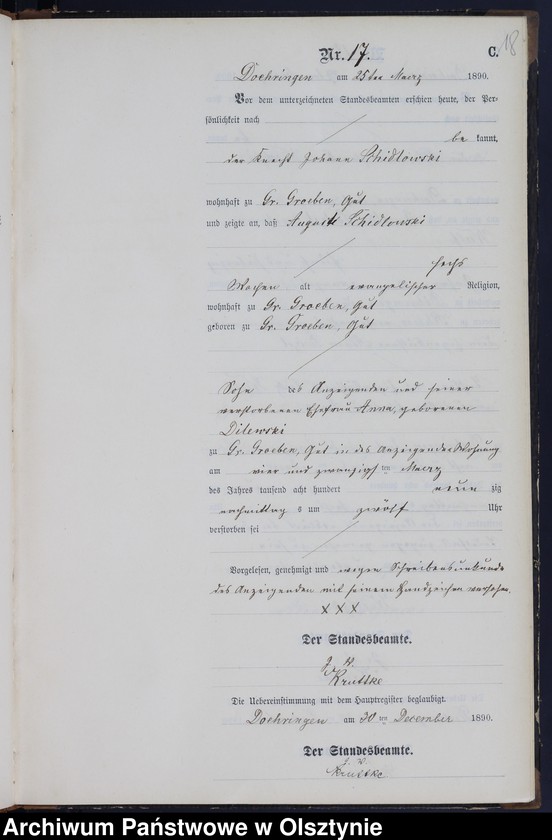 18
Nr. 17. C.
Doehringen am 25ten Maerz 1890.
Vor dem unterzeichneten Standesbeamten erschien heute, der Per-
sönlichkeit nach
be kannt,
der Knecht Johann Schidlowski
wohnhaft zu Gr. Groeben, Gut
und zeigte an, daß August Schidlowski
sechs
Wochen alt evangelischer Religion,
wohnhaft zu Gr. Groeben, Gut
geboren zu Gr. Groeben, Gut
Sohn des Anzeigenden und seiner
verstorbenen Ehefrau Anna, geborenen
Dilewski
zu Gr. Groeben, Gut in des Anzeigenden Wohnung
am vier und zwanzigsten Maerz
des Jahres tausend acht hundert neun zig
nachmittag s um zwölf Uhr
verstorben sei
Vorgelesen, genehmigt und wegen Schreibensunkunde
des Anzeigenden mit seinem Handzeichen versehen.
X X X
Der Standesbeamte.
J. V.
Kruttke
Die Uebereinstimmung mit dem Hauptregister beglaubigt.
Doehringen am 30ten December 1890.
Der Standesbeamte.
J. V.
Kruttke
Archiwum Państwowe w Olsztynie